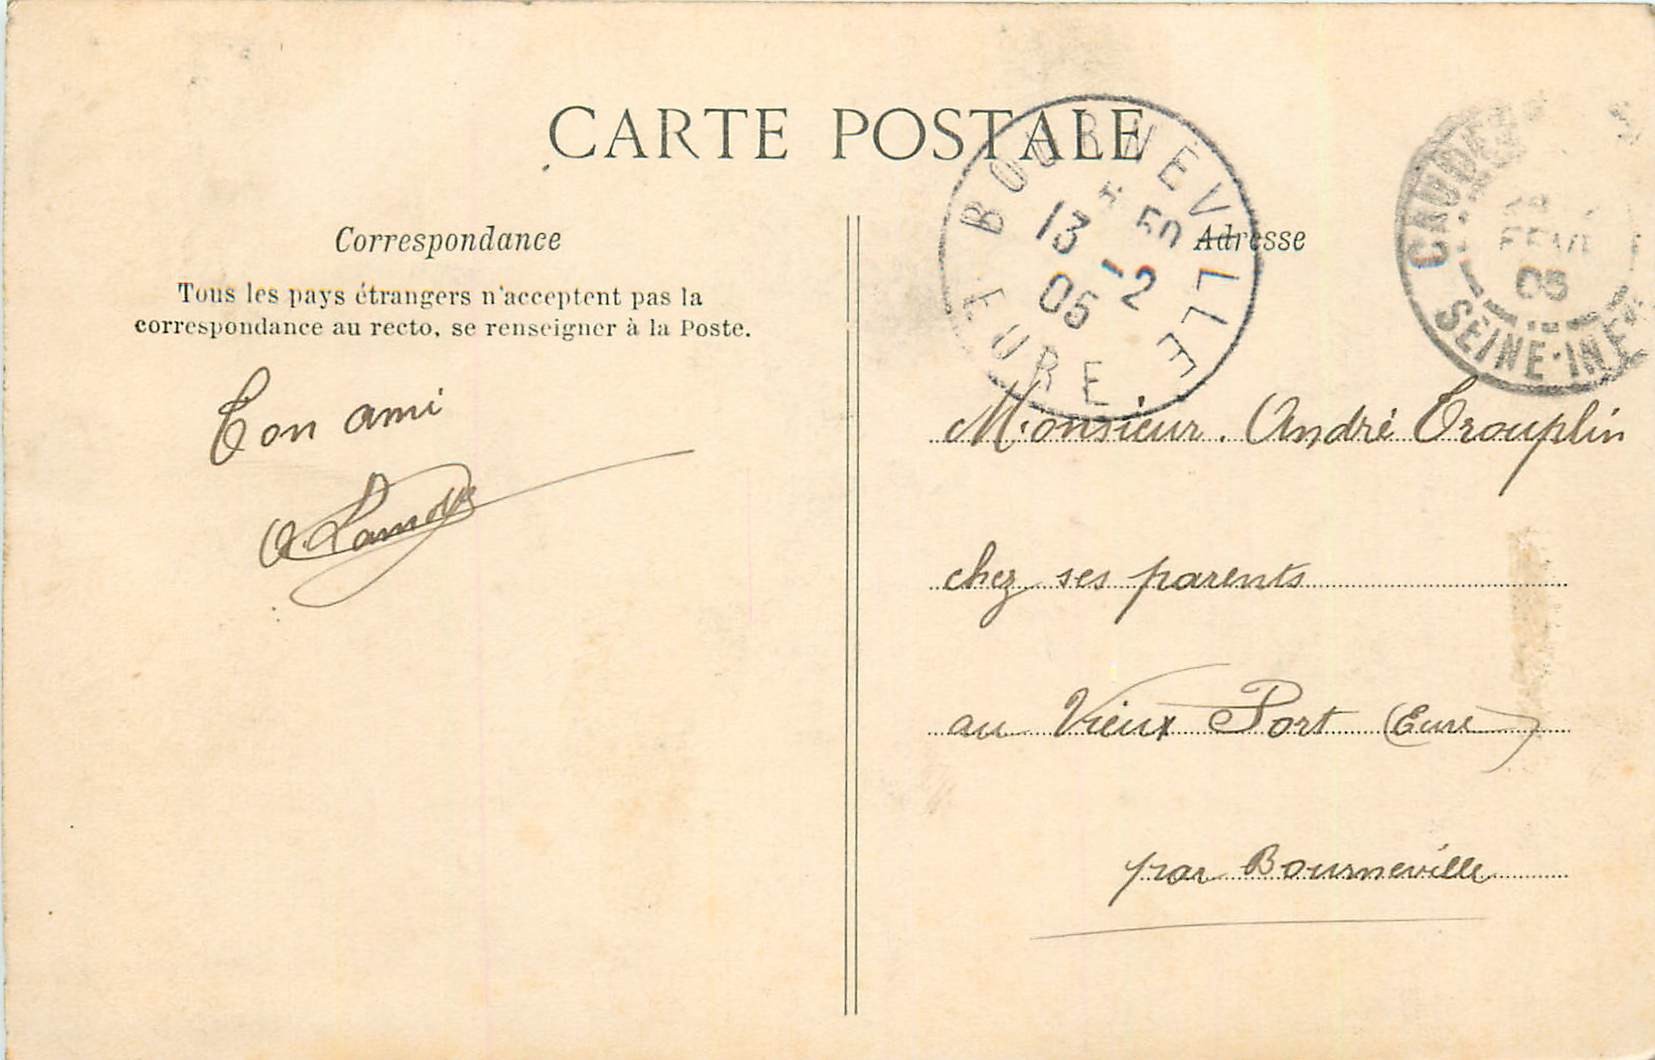 CARTE POSTALE
Correspondance
Tous les pays étrangers n'acceptent pas la
correspondance au recto, se renseigner à la Poste.
Ton ami
Adresse
BOURNEVILLE
13 * 50
-2
05
EURE
05
SEINE-INFRE
Monsieur. André Trouplin
chez ses parents
au Vieux Port (Eure)
par Bourneville